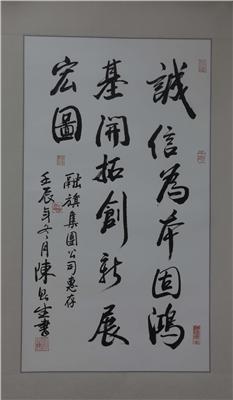 誠信為本固鴻
基開拓創新展
宏圖
融旗集團公司惠存
壬辰年冬月陳